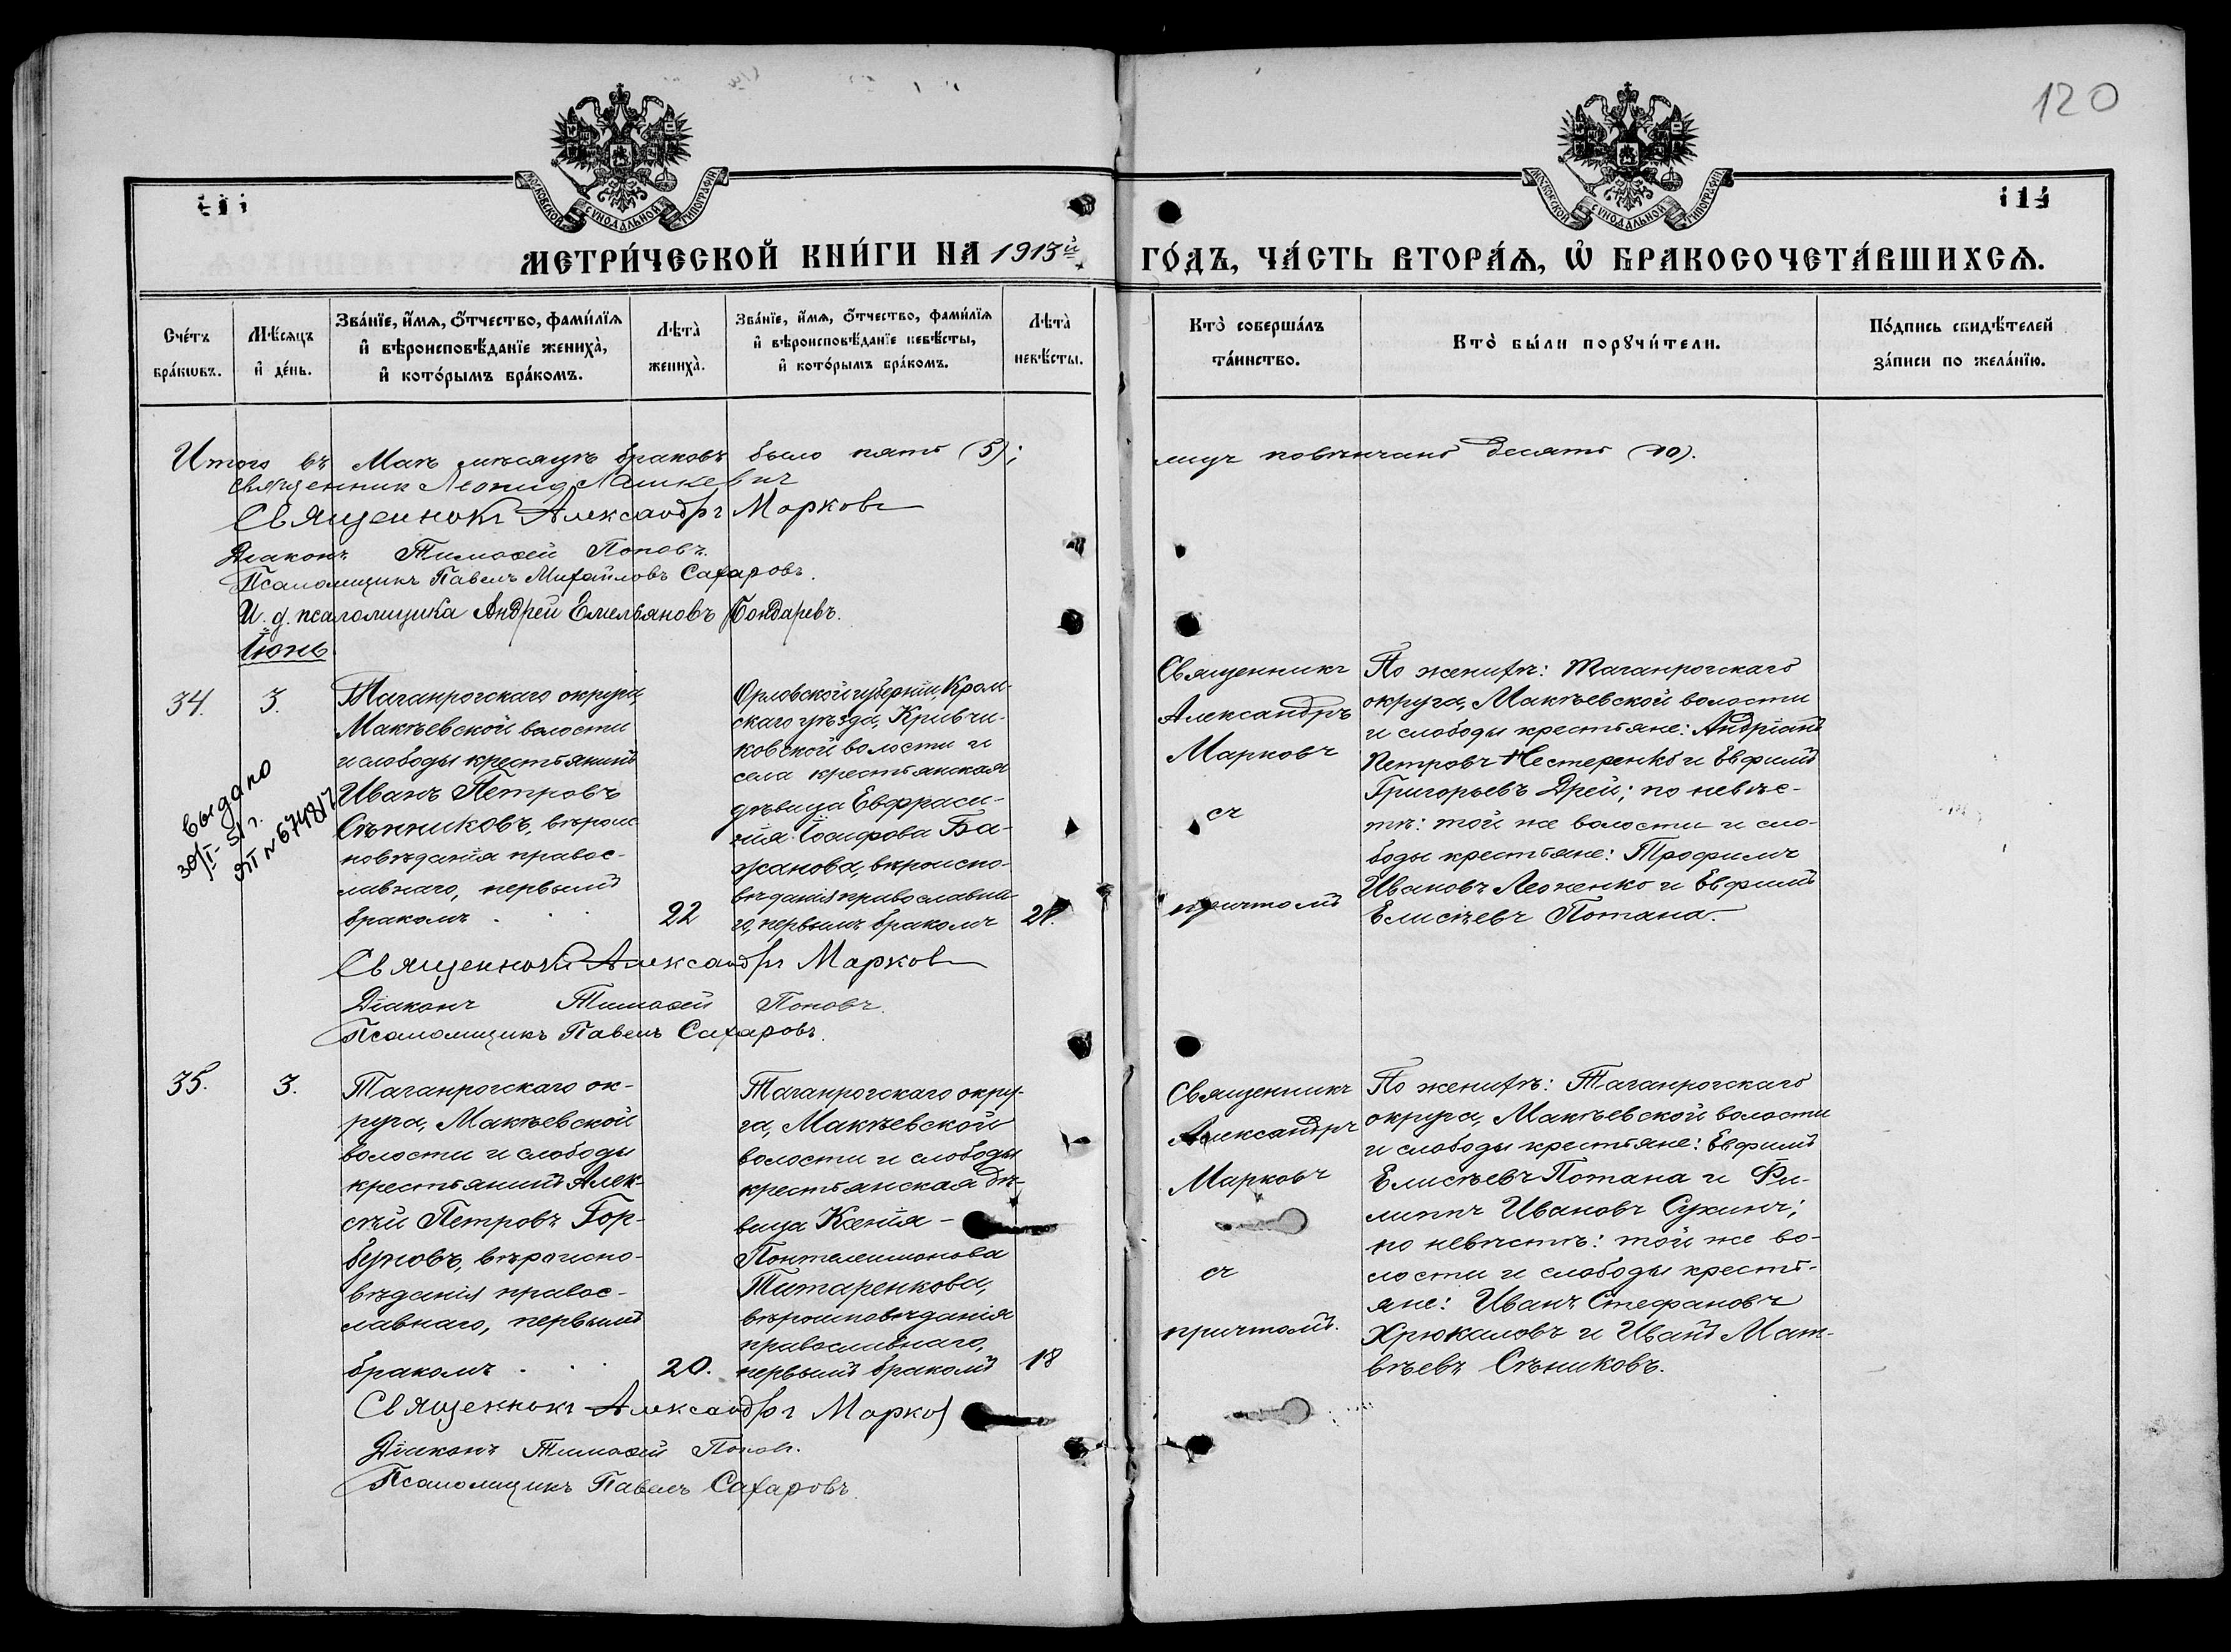 120
МОСКОВСКОЙ СѴНОДАЛЬНОЙ ТИПОГРАФІИ
МОСКОВСКОЙ СѴНОДАЛЬНОЙ ТИПОГРАФІИ
МЕТРИ́ЧЕСКОЙ КНИ́ГИ НА 1913й
ГО́ДЪ, ЧА́СТЬ ВТОРА́Ѧ, Ѡ҆ БРАКОСОЧЕТА́ВШИХСѦ.
Сче́тъ бра́кѡвъ.
Мѣ́сѧцъ и҆ де́нь.
Зва́нїе, и҆́мѧ, ѻ҆́тчество, фами́лїѧ
и҆ вѣроисповѣ́данїе жениха̀,
и҆ кото́рымъ бра́комъ.
Лѣта̀ жениха̀.
Зва́нїе, и҆́мѧ, ѻ҆́тчество, фами́лїѧ
и҆ вѣроисповѣ́данїе невѣ́сты,
и҆ кото́рымъ бра́комъ.
Лѣта̀ невѣ́сты.
Кто̀ соверша́лъ
та́инство.
Кто̀ бы́ли порꙋчи́тели.
По́дпись свидѣ́телей
за́писи по жела́нїю.
Итого въ Маѣ мѣсяцѣ браковъ было пять (5);
лицъ повѣнчано десять (10).
Священник Леонид Лашкевич
Священникъ Александръ Марковъ
Діаконъ Тимоѳей Поповъ.
Псаломщикъ Павелъ Михайловъ Сахаровъ.
И. д. псаломщика Андрей Емельяновъ Бондаревъ.
Іюнь
34.
3.
Таганрогскаго округа,
Макѣевской волости
и слободы крестьянинъ
Иванъ Петровъ
Сѣнниковъ, вѣроис-
повѣданія правос-
лавнаго, первымъ
бракомъ . . .
22
Орловской губерніи, Кром-
скаго уѣзда, Кривчи-
ковской волости и
села крестьянская
дѣвица Евфраси-
нія Іосифова Ба-
жанова, вѣроиспо-
вѣданія православна-
го, первымъ бракомъ
21.
Священникъ
Александръ
Марковъ
съ
причтомъ
По женихѣ: Таганрогскаго
округа, Макѣевской волости
и слободы крестьяне: Андріанъ
Петровъ Нестеренко и Евфимъ
Григорьевъ Дрей; по невѣс-
тѣ: той же волости и сло-
боды крестьяне: Трофимъ
Ивановъ Леоненко и Евфимъ
Елисѣевъ Потана.
выдано
30/I-51 г.
ЯП №674817
Священникъ Александръ Марковъ
Діаконъ Тимоѳей Поповъ.
Псаломщикъ Павелъ Сахаровъ.
35.
3.
Таганрогскаго ок-
руга, Макѣевской
волости и слободы
крестьянинъ Алек-
сѣй Петровъ Гор-
буновъ, вѣроиспо-
вѣданія правос-
лавнаго, первымъ
бракомъ . . .
20.
Таганрогскаго окру-
га, Макѣевской
волости и слободы
крестьянская дѣ-
вица Ксенія
Понтелеимонова
Титаренкова,
вѣроисповѣданія
православнаго,
первымъ бракомъ
18
Священникъ
Александръ
Марковъ
съ
причтомъ.
По женихѣ: Таганрогскаго
округа, Макѣевской волости
и слободы крестьяне: Евфимъ
Елисѣевъ Потана и Фи-
липпъ Ивановъ Сухинъ;
по невѣстѣ: той же во-
лости и слободы кресть-
яне: Иванъ Стефановъ
Хрюкаловъ и Иванъ Мат-
вѣевъ Сѣниковъ.
Священникъ Александръ Марков
Діаконъ Тимоѳей Поповъ.
Псаломщикъ Павелъ Сахаровъ.